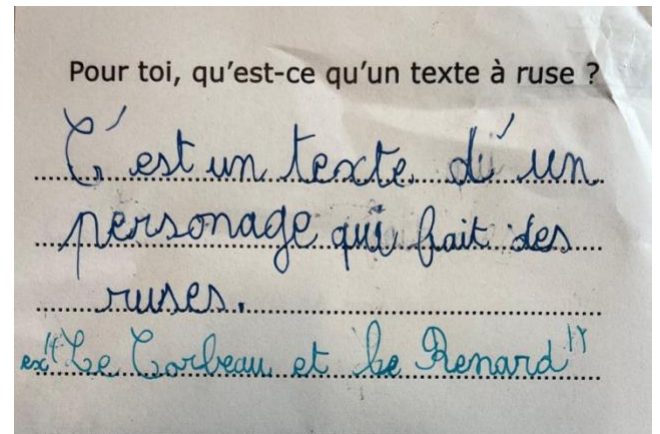 Pour toi, qu'est-ce qu'un texte à ruse ?
C'est un texte d'un
personage qui fait des
ruses.
ex "Le Corbeau et le Renard"